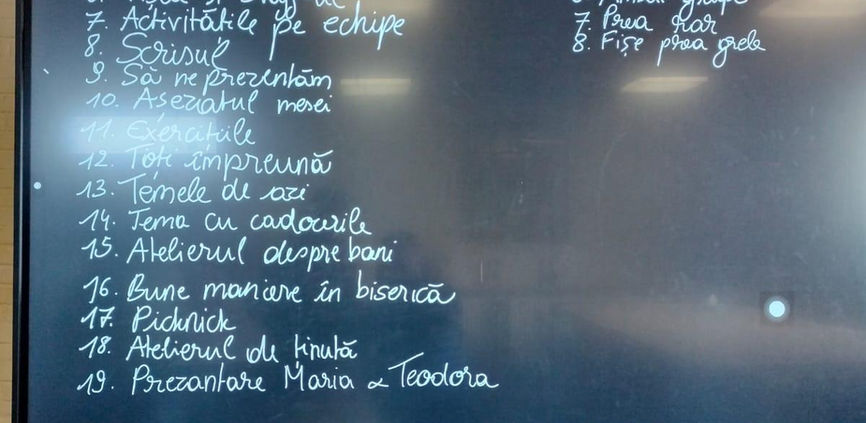 7. Activitățile pe echipe
8. Scrisul
9. Să ne prezentăm
10. Asezatul mesei
11. Exercițiile
12. Toți împreună
13. Temele de azi
14. Tema cu cadourile
15. Atelierul despre bani
16. Bune maniere în biserică
17. Picknick
18. Atelierul de ținută
19. Prezantare Maria & Teodora
7. Prea rar
8. Fișe prea grele